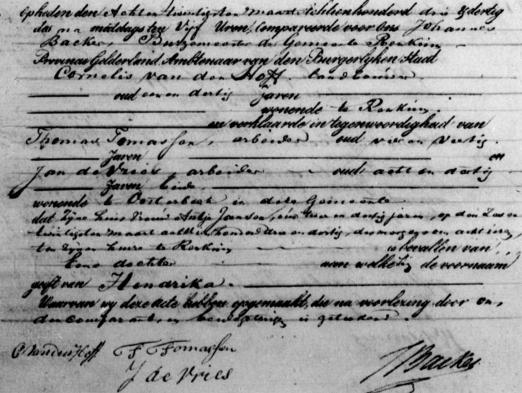 Op heden den Achten twintigsten maart achttienhonderd drie & dertig
des na middags ten Vijf Uren, Compareerde voor ons Johannes
Backer, Burgemeester der Gemeente Renkum
Provincie Gelderland Ambtenaar van den Burgerlyken Staat
Cornelis van der Hoff
oud een en dertig Jaren
wonende te Renkum.
en verklaarde in tegenwoordigheid van
Thomas Tomassen, arbeider oud vier en Veertig
Jaren en
Jan de Vries, arbeider oud acht en dertig
Jaren beide
wonende te Oosterbeek in deze Gemeente
dat Zijne huis Vrouw Antje Jansen, oud en dertig jaren, op den Zes en
twintigsten maart achttienhonderd drie en dertig, des morgens ten acht ure,
ten Zijnen huize te Renkum is bevallen van
Eene dochter aan welke hij de voornaam
geeft van Hendrika.
Waarvan wy deze Acte hebben opgemaakt, die na voorlezing door ons,
den comparant en is getekend.
C Vanderhoff T Tomassen
J de Vries
JBacker